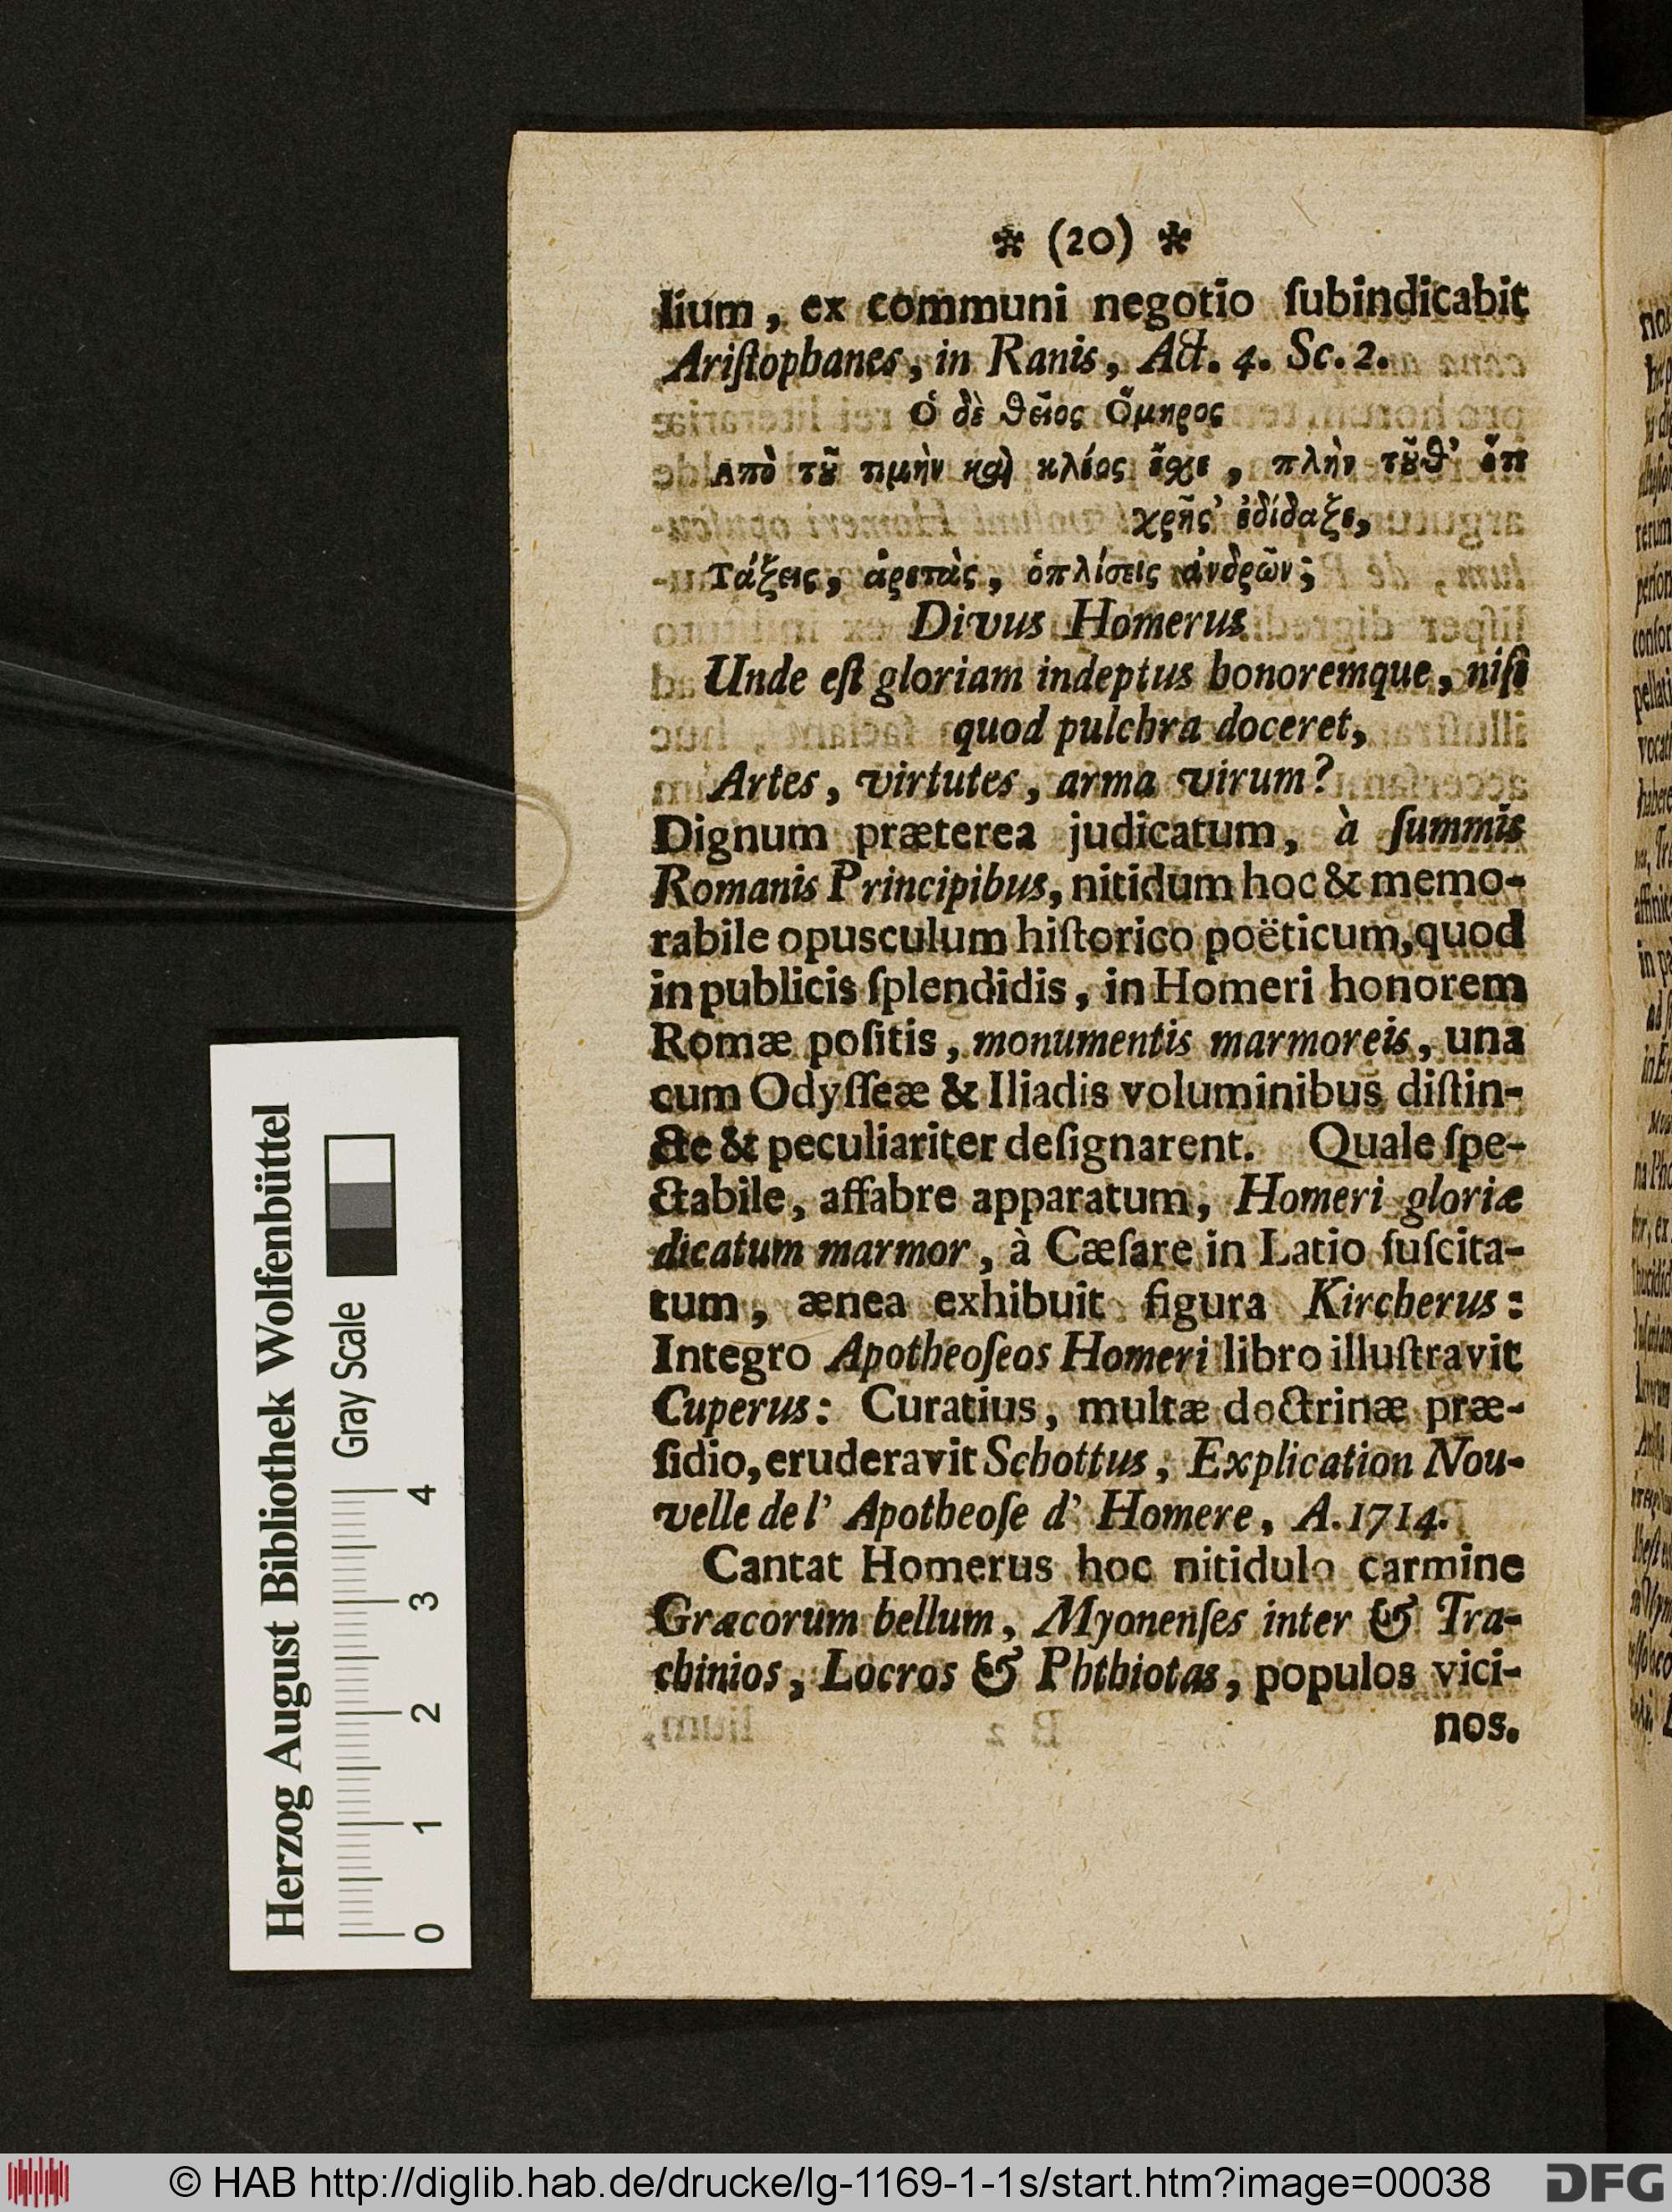 * (20) *
lium, ex communi negotio ſubindicabit
Ariſtophanes, in Ranis, Act. 4. Sc. 2.
Ὁ δὲ θεῖος Ὅμηρος
Ἀπὸ τȣ͂ τιμὴν καὶ κλέος ἔχε, πλὴν τȣ͂θ' ὅτι
χρῆς' ἐδίδαξε,
Τάξεις, ἀρετὰς, ὁπλίσεις ἀνδρῶν;
Divus Homerus
Unde eſt gloriam indeptus honoremque, niſi
quod pulchra doceret,
Artes, virtutes, arma virum?
Dignum præterea judicatum, à ſummis
Romanis Principibus, nitidum hoc & memo-
rabile opusculum hiſtorico poëticum, quod
in publicis ſplendidis, in Homeri honorem
Romæ poſitis, monumentis marmoreis, una
cum Odyſſeæ & Iliadis voluminibus diſtin-
cte & peculiariter deſignarent. Quale ſpe-
ctabile, affabre apparatum, Homeri gloriæ
dicatum marmor, à Cæſare in Latio ſuſcita-
tum, ænea exhibuit figura Kircherus:
Integro Apotheoſeos Homeri libro illuſtravit
Cuperus: Curatius, multæ doctrinæ præ-
ſidio, eruderavit Schottus, Explication Nou-
velle de l' Apotheoſe d' Homere, A. 1714.
Cantat Homerus hoc nitidulo carmine
Græcorum bellum, Myonenſes inter & Tra-
chinios, Locros & Phthiotas, populos vici-
nos.
Herzog August Bibliothek Wolfenbüttel
Gray Scale
0 1 2 3 4
© HAB http://diglib.hab.de/drucke/lg-1169-1-1s/start.htm?image=00038
DFG